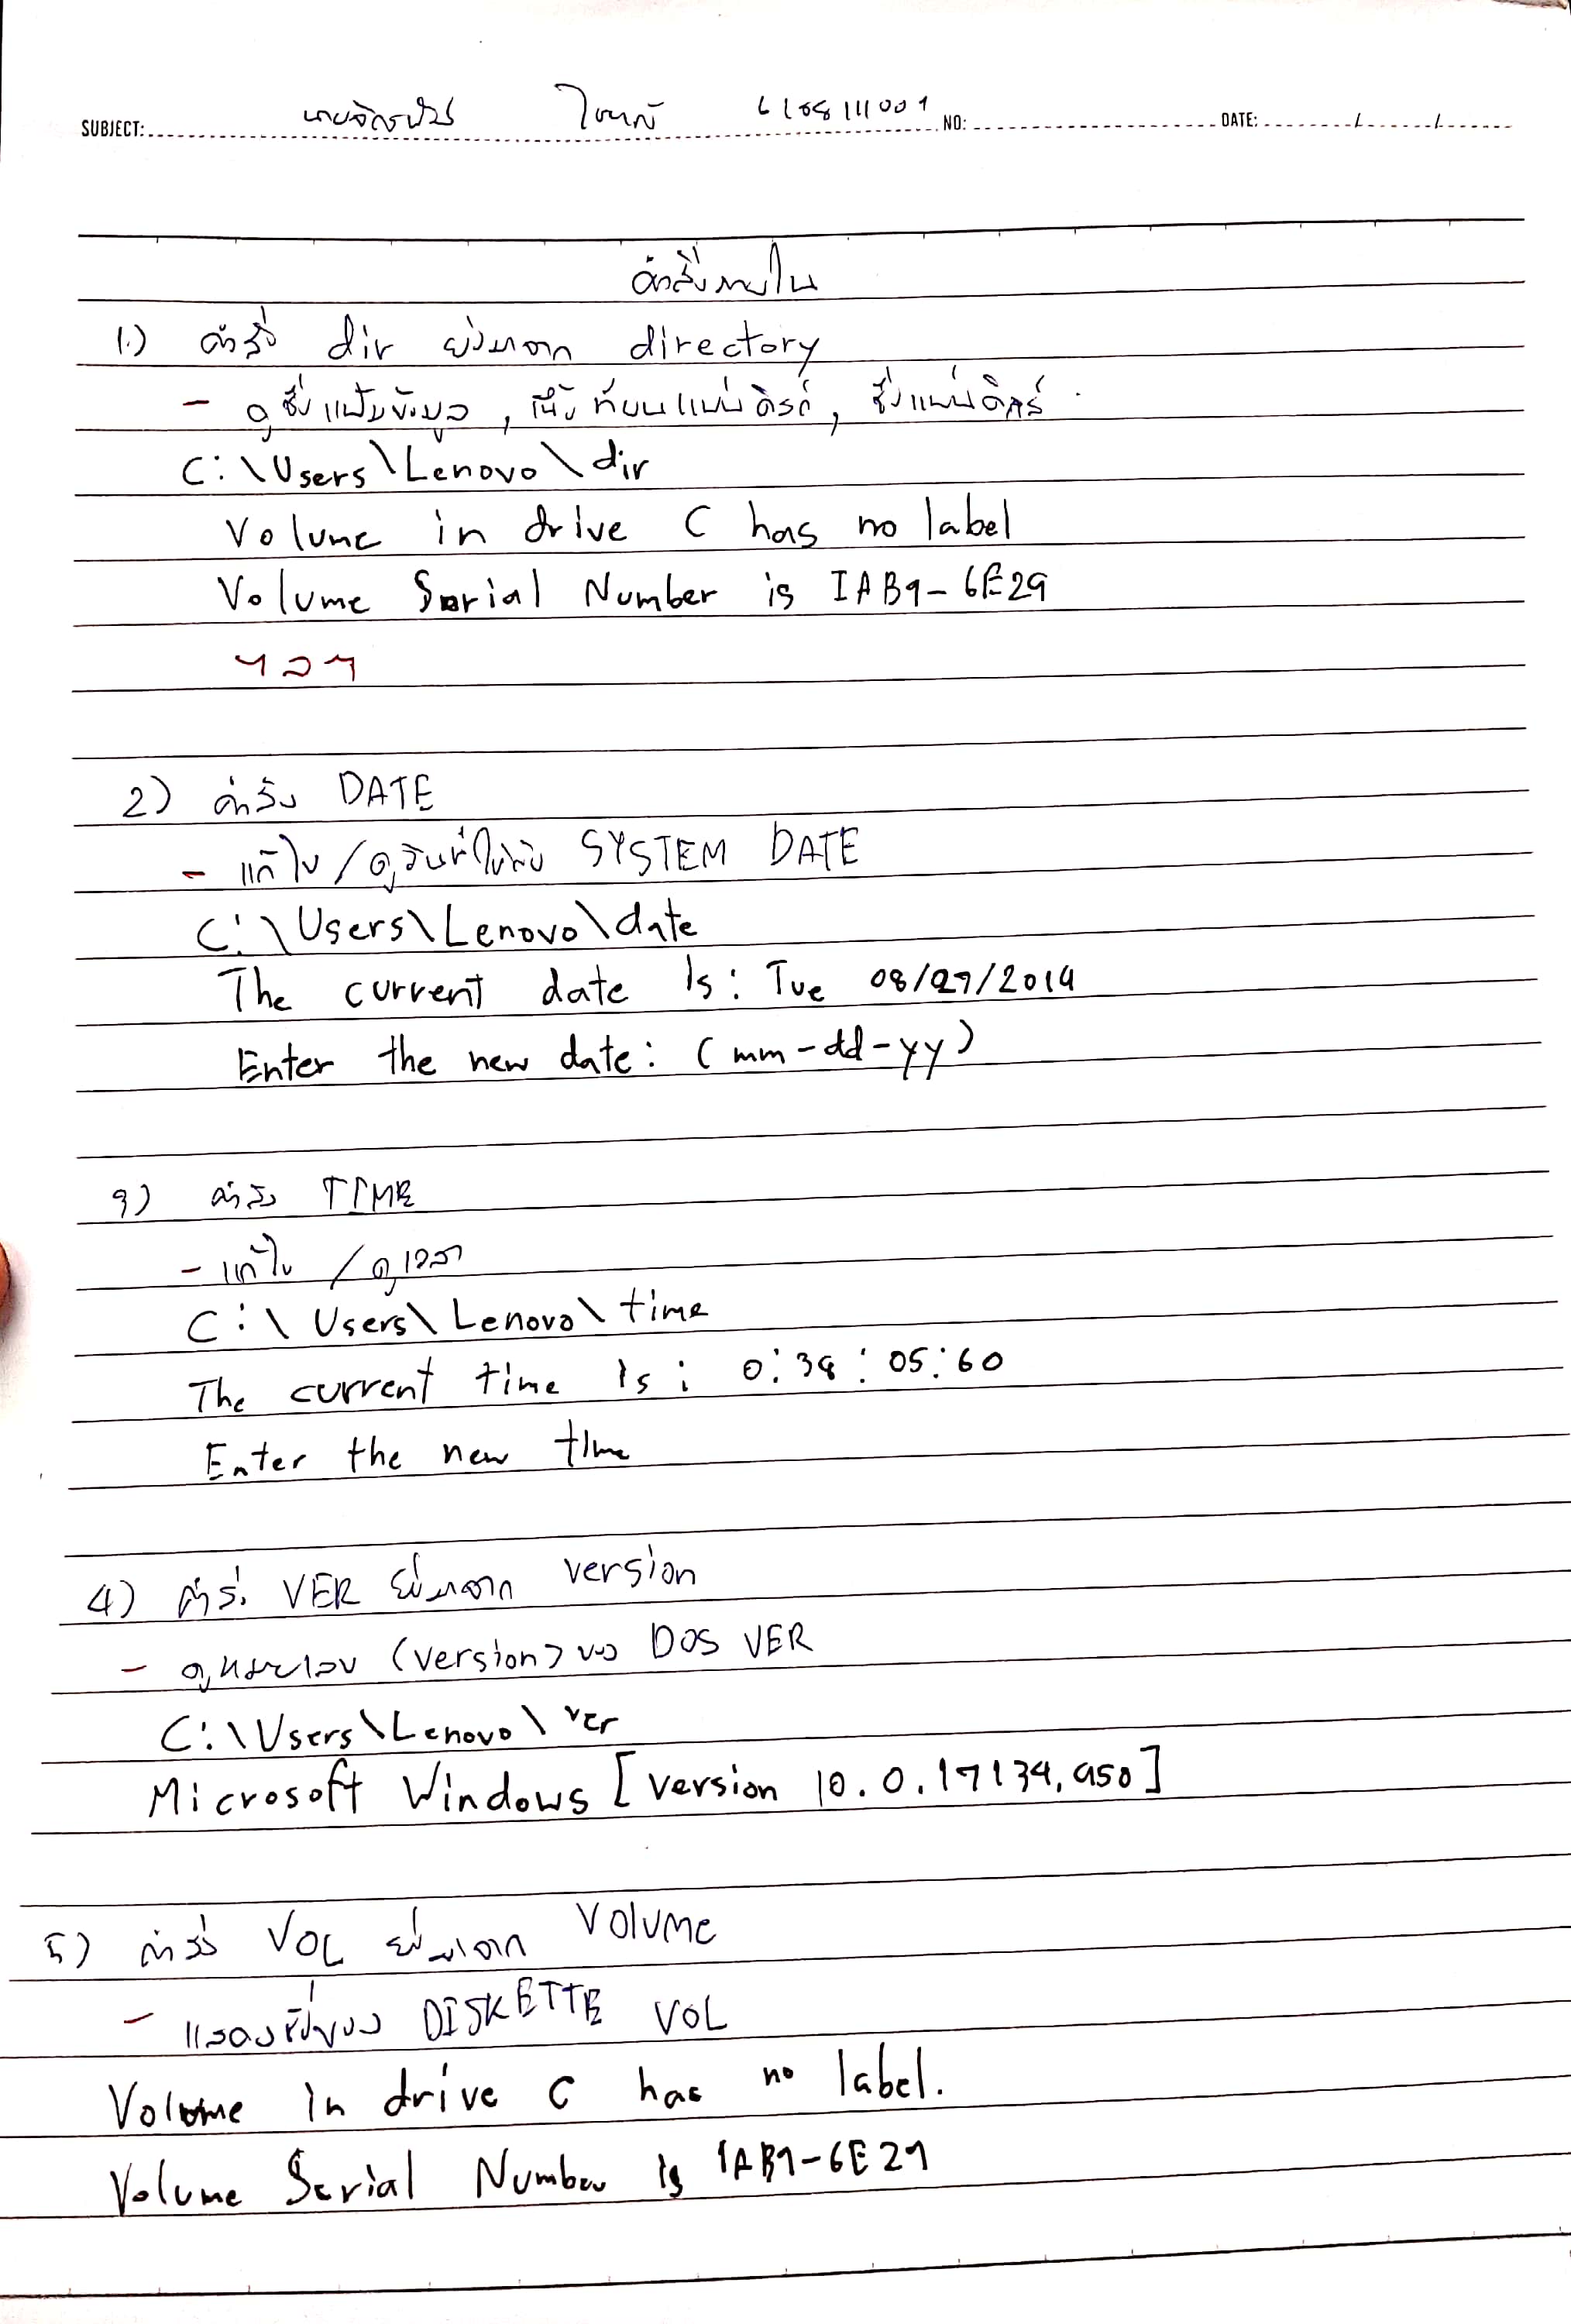 SUBJECT: 6108111009 NO: DATE: / /
คำสั่งภายใน
1.) คำสั่ง dir ย่อมาจาก directory
- ดูชื่อแฟ้มข้อมูล, เนื้อที่บนแผ่นดิสก์, ชื่อแผ่นดิสก์
C:\Users\Lenovo\dir
Volume in drive C has no label
Volume Serial Number is IAB9-6E29
ฯลฯ
2) คำสั่ง DATE
- แก้ไข/ดูวันที่ให้กับ SYSTEM DATE
C:\Users\Lenovo\date
The current date Is: Tue 08/27/2019
Enter the new date: (mm-dd-yy)
3) คำสั่ง TIME
- แก้ไข /ดูเวลา
C:\Users\Lenovo\time
The current time Is: 0:38:05:60
Enter the new tIme
4) คำสั่ง VER ย่อมาจาก version
- ดูหมายเลข (version) ของ DOS VER
C:\Users\Lenovo\ver
Microsoft Windows [version 10.0.17134.950]
5) คำสั่ง VOL ย่อมาจาก VOlUMe
- แสดงชื่อของ DISKETTE VOL
Volume In drive C has no label.
Volume Serial Number Is 1AB9-6E29